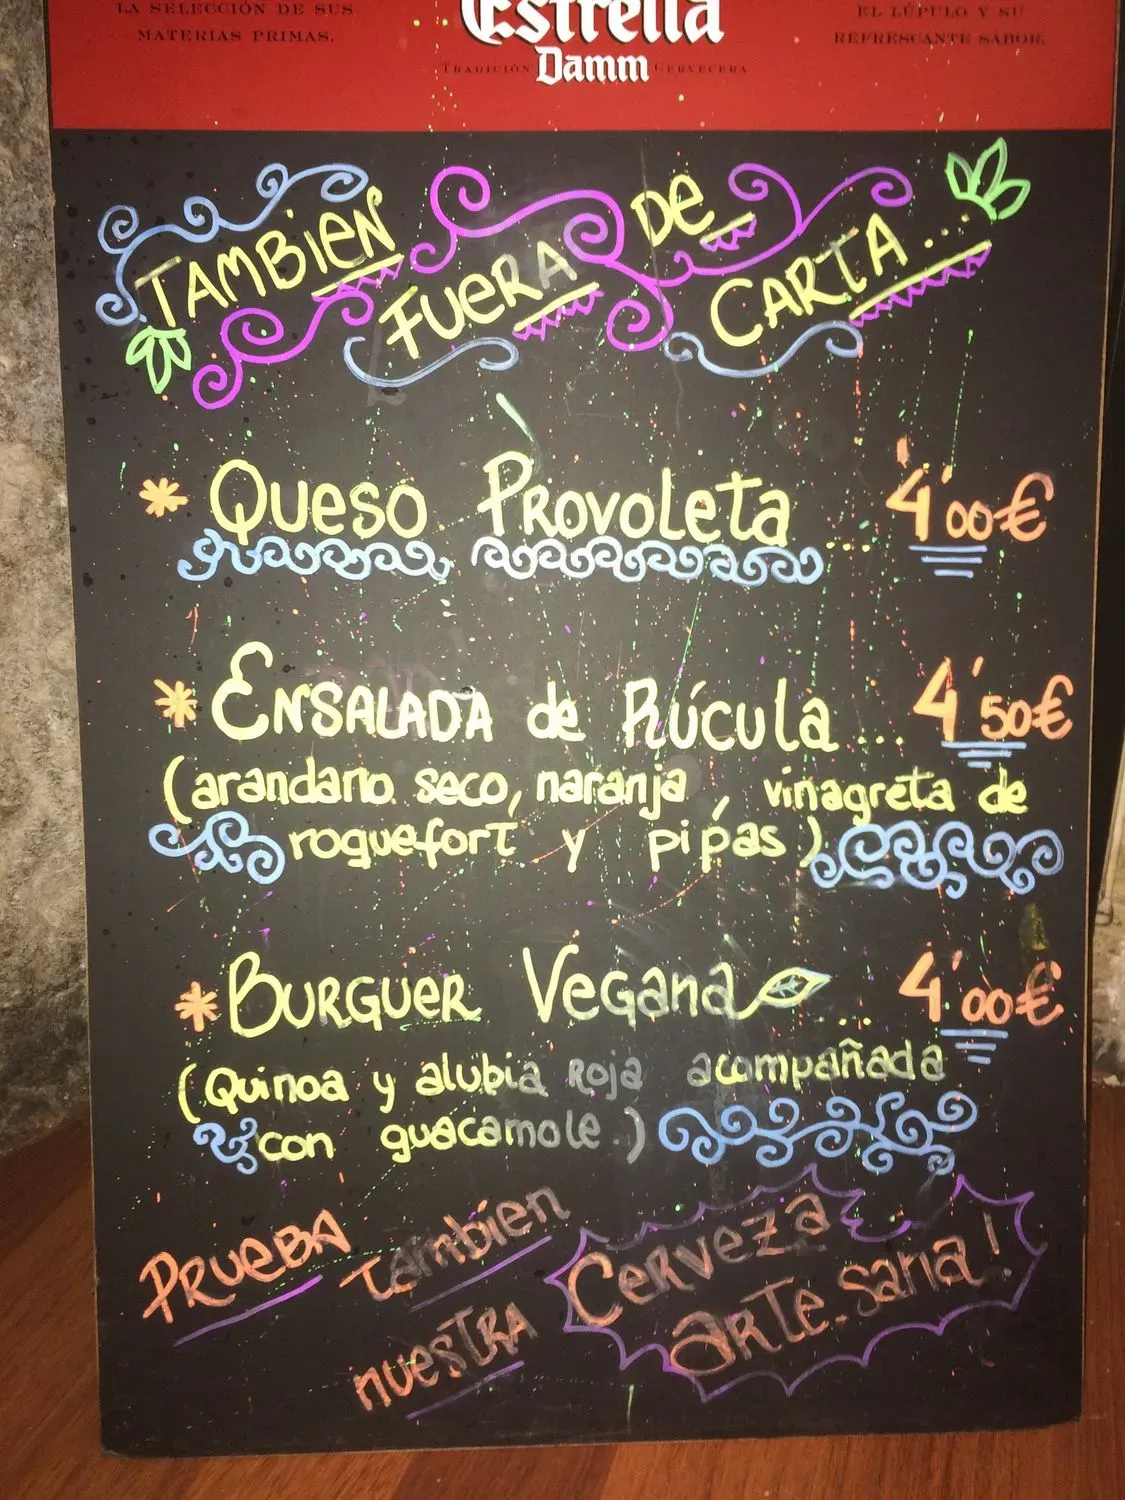 LA SELECCIÓN DE SUS
MATERIAS PRIMAS.
Estrella
Damm
TRADICIÓN CERVECERA
EL LÚPULO Y SU
REFRESCANTE SABOR.
TAMBIEN FUERA DE CARTA...
* QUESO PROVOLETA... 4'00€
* ENSALADA de Rúcula... 4'50€
(arandano seco, naranja, vinagreta de
roquefort y pipas)
* BURGUER VEGANA... 4'00€
(Quinoa y alubia ROJA acompañada
con guacamole.)
PRUEBA también
nuestra Cerveza
arte-sana!